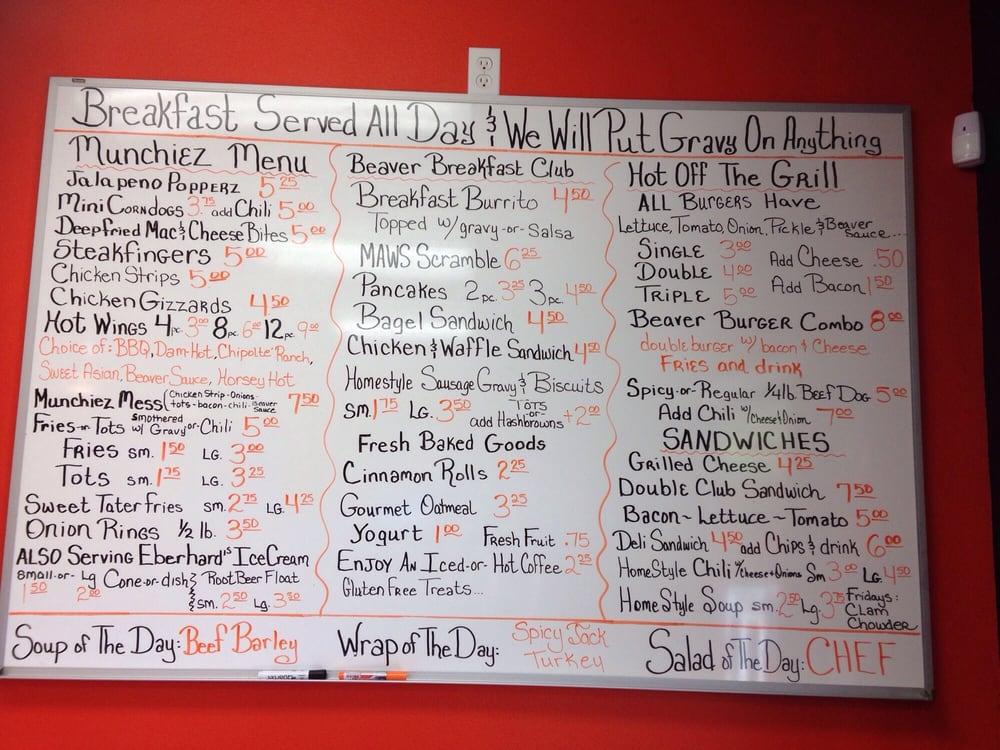 Breakfast Served All Day & We Will Put Gravy On Anything
Munchiez Menu
Jalapeno Popperz 5.25
Mini Corndogs 3.75 add Chili 5.00
Deepfried Mac & Cheese Bites 5.00
Steakfingers 5.00
Chicken Strips 5.00
Chicken Gizzards 4.50
Hot Wings 4pc. 3.00 8pc. 6.00 12pc. 9.00
Choice of: BBQ, Dam-Hot, Chipolte Ranch,
Sweet Asian, Beaver Sauce, Horsey Hot
Munchiez Mess (Chicken Strip-Onions- 7.50
tots-bacon-chili-Beaver Sauce
Fries-or-Tots smothered w/ Gravy or Chili 5.00
Fries sm. 1.50 LG. 3.00
Tots sm. 1.75 LG. 3.25
Sweet Tater fries sm. 2.75 LG. 4.25
Onion Rings 1/2 lb. 3.50
ALSO Serving Eberhard's IceCream
small-or-Lg Cone-or-dish Root Beer Float
1.50 2.00 sm. 2.50 Lg. 3.50
Beaver Breakfast Club
Breakfast Burrito 4.50
Topped w/gravy-or-Salsa
MAWS Scramble 6.25
Pancakes 2pc. 3.25 3pc. 4.50
Bagel Sandwich 4.50
Chicken & Waffle Sandwich 4.50
Homestyle Sausage Gravy & Biscuits
sm. 1.75 LG. 3.50 add Tots-or-Hashbrowns +2.00
Fresh Baked Goods
Cinnamon Rolls 2.25
Gourmet Oatmeal 3.25
Yogurt 1.00 Fresh Fruit .75
Enjoy An Iced-or-Hot Coffee 2.25
Gluten Free Treats...
Hot Off The Grill
ALL Burgers Have
Lettuce, Tomato, Onion, Pickle & Beaver Sauce....
Single 3.00 Add Cheese .50
Double 4.00 Add Bacon 1.50
Triple 5.00
Beaver Burger Combo 8.00
double burger w/ bacon & Cheese
Fries and drink
Spicy-or-Regular 1/4lb. Beef Dog 5.00
Add Chili w/cheese & Onion 7.00
SANDWICHES
Grilled Cheese 4.25
Double Club Sandwich 7.50
Bacon~Lettuce~Tomato 5.00
Deli Sandwich 4.50 add Chips & drink 6.00
HomeStyle Chili w/cheese & Onions Sm 3.00 LG. 4.50
Home Style Soup sm. 2.50 Lg. 3.75 Fridays: Clam Chowder
Soup of The Day: Beef Barley
Wrap of The Day: Spicy Jack Turkey
Salad of The Day: CHEF